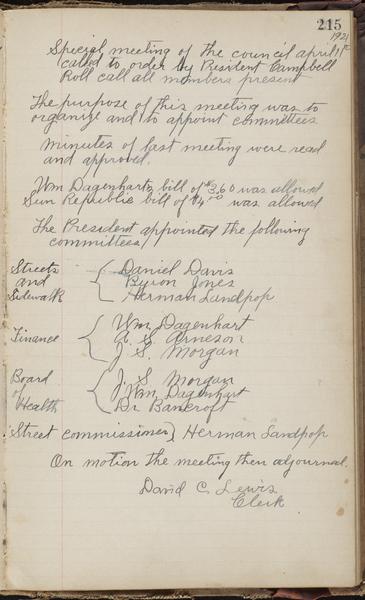 215
Special meeting of the council april 1st 1921
called to order by President Campbell
Roll call all members present
The purpose of this meeting was to
organize and to appoint committees
Minutes of last meeting were read
and approved.
Wm Dagenhart bill of $3.60 was allowed
Sun Republic bill of $4.00 was allowed
The President appointed the following
committees
Streets and Sidewalk { Daniel Davis
Byron Jones
Herman Landpop
Finance { Wm. Dagenhart
A. S. Arneson
J. S. Morgan
Board of Health { J. S. Morgan
Wm. Dagenhart
Dr. Bancroft
Street commissioner } Herman Landpop
On motion the meeting then adjournal.
David C. Lewis
Clerk